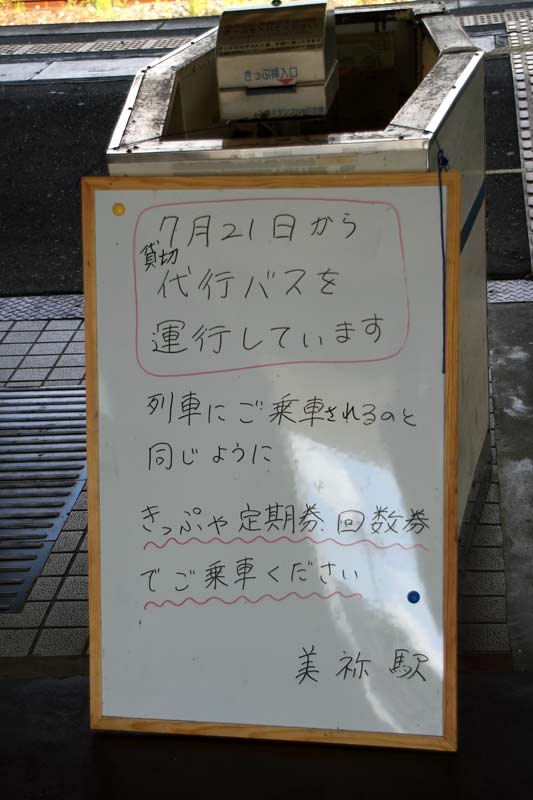 きっぷ挿入口
7月21日から
貸切
代行バスを
運行しています
列車にご乗車されるのと
同じように
きっぷや定期券回数券
でご乗車ください
美祢駅